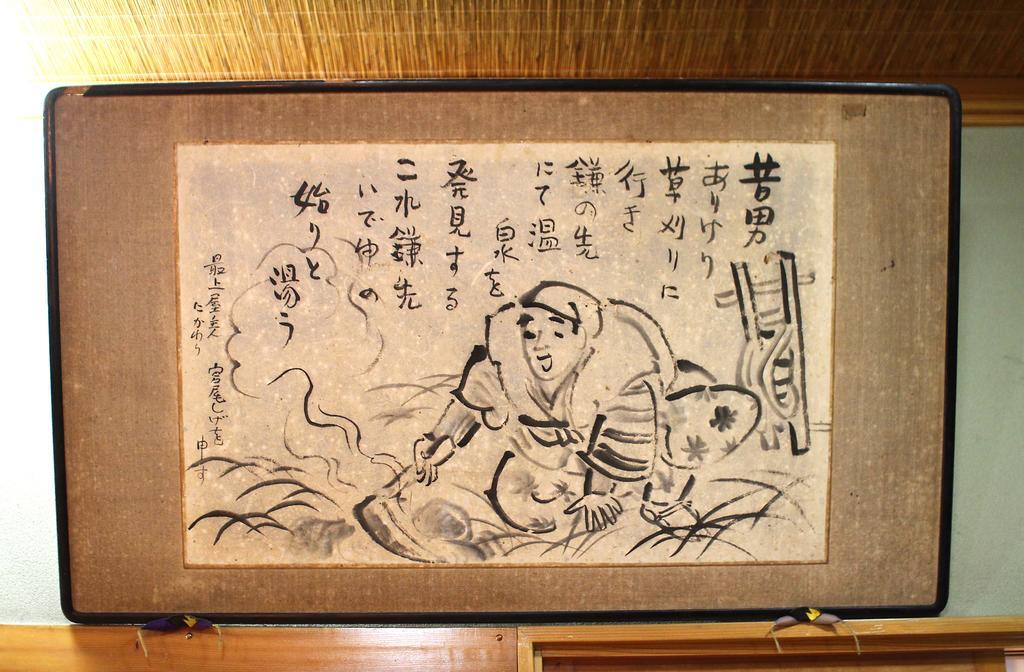 昔男
ありけり
草刈りに
行き
鎌の先
にて温
泉を
発見する
これ鎌先
いで伸の
始りと
湯う
最上屋主人
にかわり
宮尾しげを
申す